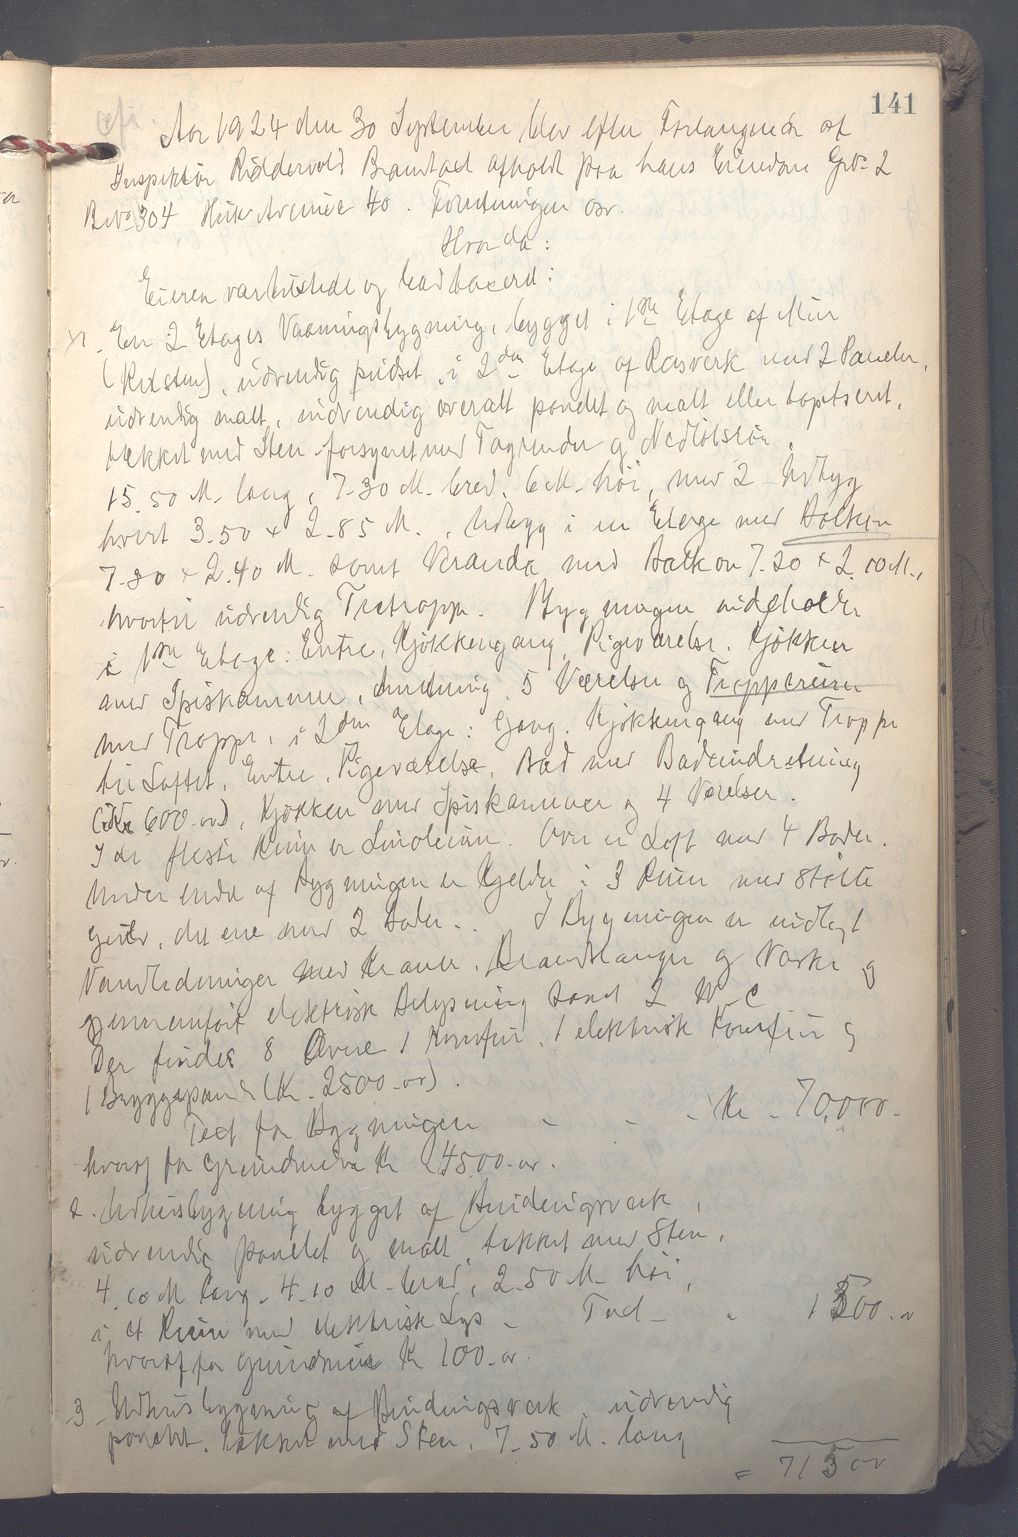 141
Aar 1924 den 30 September blev efter Forlangende af
Inspektør Riddervold Branntakst afholdt paa hans Eiendom Gno 2
Bno 304 Huk Avenue 40. Forretningen
Hvorda:
Eieren var tilstede og
1. En 2 Etages Vaaningsbygning, bygget i 1ste Etage af Mur
udvendig pudset, i 2den Etage af Reisverk med 2 Paneler,
udvendig malt, indvendig overalt panelet og malt eller tapetseret,
tækket med Sten forsynet med Tagrender og Nedløbsrør.
15.50 M. lang, 7.30 M. bred, 6 M. høi, med 2 Udbyg
hvert 3.50 x 2.85 M., Udbygg i en Etage med Balkon
7.80 x 2.40 M. samt Veranda med Balkon 7.20 x 2.00 M.,
hvortil udvendig Trætrappe. Bygningen indeholder
i 1ste Etage: Entre, Kjøkkengang, Pigeværelse, Kjøkken
med Spiskammer, Anretning, 5 Værelser og Trapperum
med Trappe, i 2den Etage: Gang, Kjøkkengang med Trappe
til Loftet, Entre, Pigeværelse, Bad med Badeindretning
(Kr 600.00), Kjøkken med Spiskammer og 4 Værelser.
I de fleste Rum er Linoleum. Over er Loft med 4 Boder.
Under endel af Bygningen er Kjelder i 3 Rum med støbte
Gulv, det ene med 2 Boder. I Bygningen er indlagt
Vandledninger med Kraner, Brandslanger og Vaske og
gjennemført elektrisk Belysning samt 2 W.C
Der findes 8 Ovne 1 Komfur, 1 elektrisk Komfur og
1 Bryggepande (Kr. 2500.00).
Taxt for Bygningen - - - Kr. 70,000.-
hvoraf for Grundmure Kr 4500.00.
2. Udhusbygning bygget af Bindingsverk,
udvendig panelet og malt, tækket med Sten,
4.10 M lang, 4.10 M. bred, 2.50 M. høi,
i 4 Rum med elektrisk Lys - Taxt - - 1500.00
hvoraf for Grundmur Kr 100.00.
3. Udhusbygning af Bindingsverk udvendig
panelet, tækket med Sten, 7.50 M. lang
= 71500